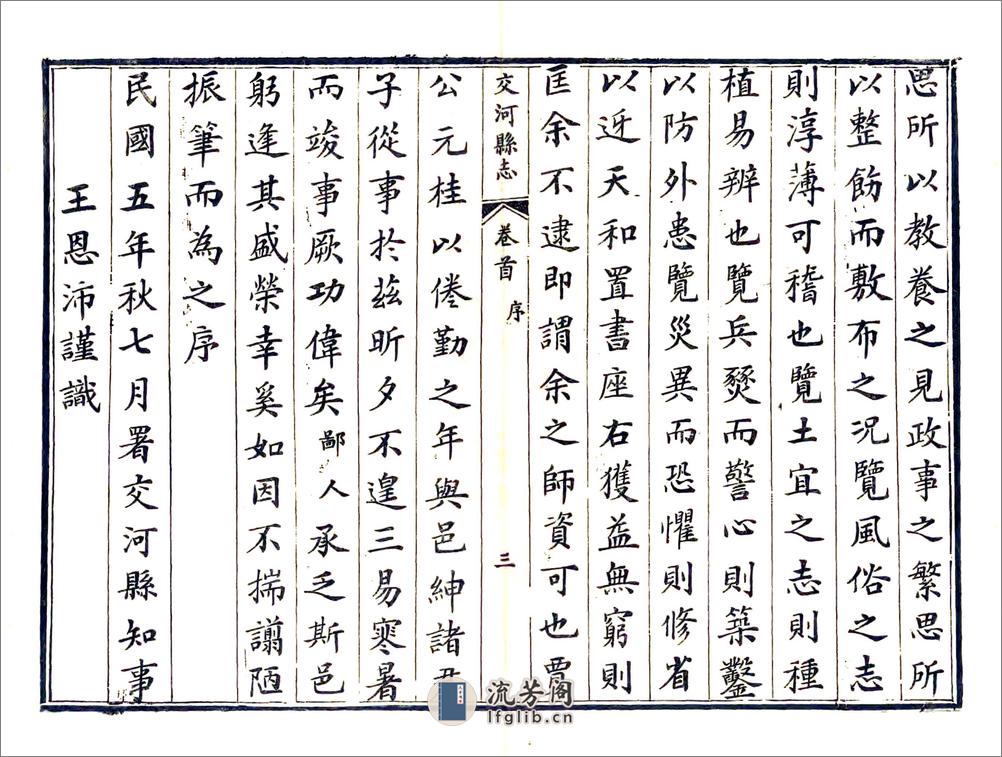 思所以教養之見政事之繁思所
以整飭而敷布之況覽風俗之志
則淳薄可稽也覽土宜之志則種
植易辨也覽兵燹而警心則築鑿
以防外患覽災異而恐懼則修省
以迓天和置書座右獲益無窮則
匡余不逮即謂余之師資可也賈
交河縣志
卷首
序
三
公元桂以倦勤之年與邑紳諸君
子從事於茲昕夕不遑三易寒暑
而竣事厥功偉矣鄙人承乏斯邑
躬逢其盛榮幸奚如因不揣譾陋
振筆而為之序
民國五年秋七月署交河縣知事
王恩沛謹識
流芳阁
lfglib.cn